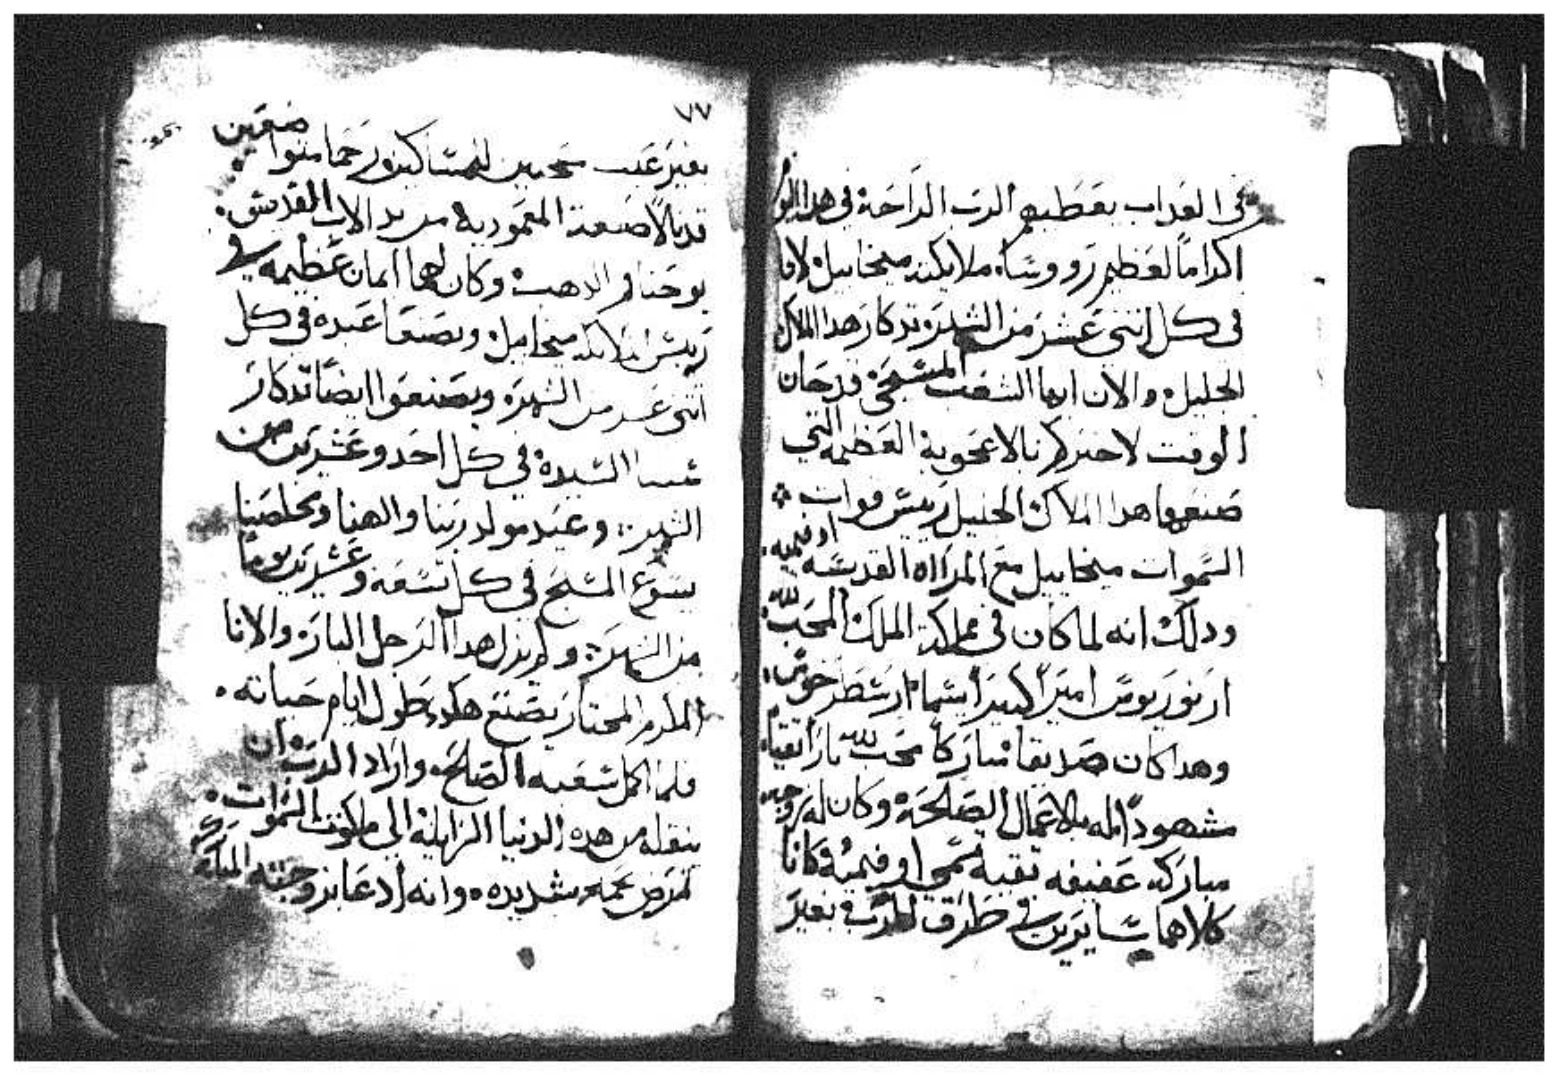 في العداب يعطيهم الرب الراحة في هدا اليوم
اكراما لعظيم رووسا ملايكته ميخاييل لانا
في كل اتني عشر من الشهر تدكار هدا الملاك
الجليل والان ايها الشعب المسيحي
الوقت لاخبركم بالاعجوبة العظيمه التي
صنعها هدا الملاك الجليل رييس قوات
السموات ميخاييل مع المراه القديسه اوفميه
ودلك انه لما كان في مملكة الملك المحب لله
انوريوس اميرا كبيرا اسمه ارسطرخوس
وهدا كان صديقا مباركا محب لله بارا تقيا
مشهودا له بالاعمال الصالحة وكان له زوجه
مباركه عفيفه تقيه تسمي اوفميه وكانا
كلاهما سايرين في طرق الرب بغير
٧٧
بغير عيب محبين للمساكين ورحما متواضعين
قد نالا صبغة المعمودية من يد الاب القديس
يوحنا فم الدهب وكان لهما ايمان عظيمه في
رييس الملايكه ميخاييل ويصنعا عيده في كل
اتني عشر من الشهر ويصنعوا ايضا تدكار
ستنا السيدة في كل احد وعشرين من
الشهر وعيد مولد ربنا والهنا ومخلصنا
يسوع المسيح في كل تسعه وعشرين يوما
من الشهر ولم يزل هدا الرجل البار والانا
المكرم المختار يصنع هكدى طول ايام حياته
فلما اكمل سعيه الصالح واراد الرب ان
ينقله من هده الدنيا الزايلة الي ملكوت السموات
تمرض بحمه شديده وانه ادعا بزوجته المباركه